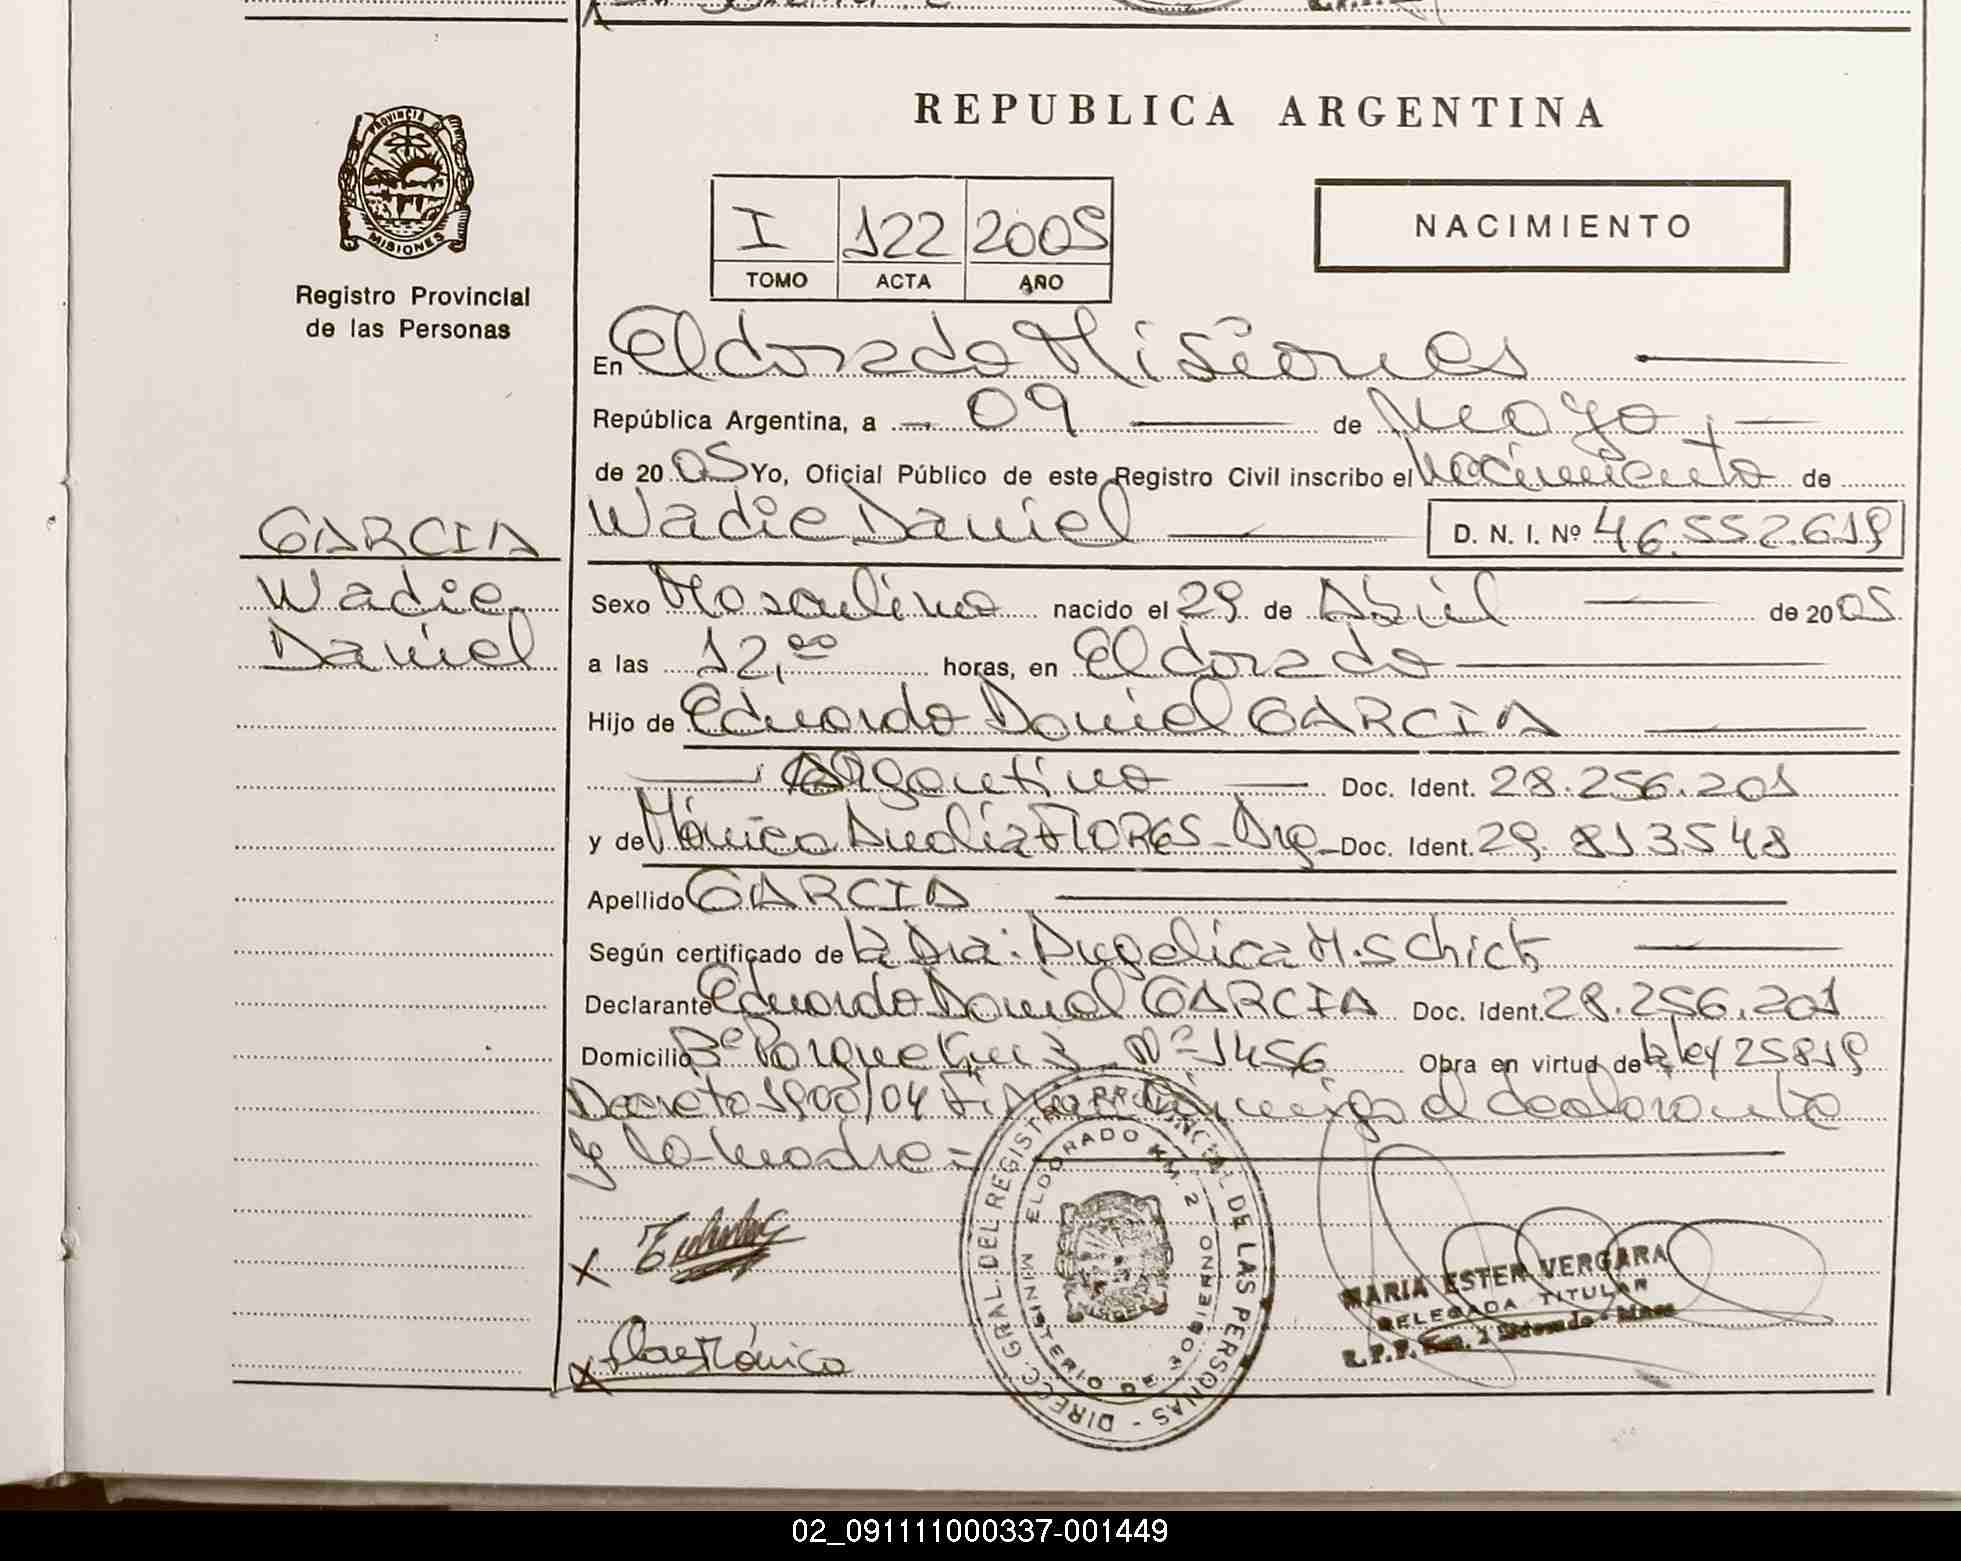 REPUBLICA ARGENTINA
PROVINCIA DE
MISIONES
Registro Provincial
de las Personas
I 122 2005
TOMO ACTA AÑO
NACIMIENTO
En Eldorado Misiones
República Argentina, a 09 de Mayo
de 2005 Yo, Oficial Público de este Registro Civil inscribo el Nacimiento de
Wadie Daniel D. N. I. Nº 46.552.619
GARCIA
Wadie
Daniel
Sexo Masculino nacido el 29 de Abril de 2005
a las 12,00 horas, en Eldorado
Hijo de Eduardo Daniel GARCIA
Argentino Doc. Ident. 28.256.201
y de Mónica Analía FLORES - Arg - Doc. Ident. 29.813548
Apellido GARCIA
Según certificado de la Dra: Angelica M. Schick
Declarante Eduardo Daniel GARCIA Doc. Ident. 28.256.201
Domicilio Bº Parque Km 3 Nº 1456 Obra en virtud de la ley 25819
Decreto 1900/04 conmigo el declarante
y la madre =
DIRECC. GRAL. DEL REGISTRO PROVINCIAL DE LAS PERSONAS -
ELDORADO KM. 2
MINISTERIO DE GOBIERNO
X
X Mónica
MARIA ESTER VERGARA
DELEGADA TITULAR
R.P.P. Km. 2 Eldorado - Mnes
02_091111000337-001449